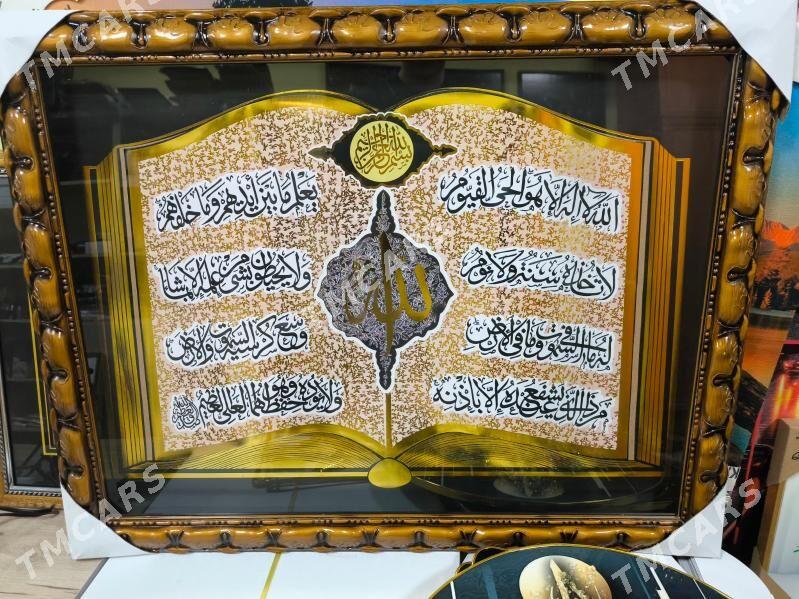 بسم الله الرحمن الرحيم
الله لا اله الا هو الحي القيوم
لا تأخذه سنة ولا نوم
له ما في السموت وما في الارض
من ذا الذي يشفع عنده الا باذنه
يعلم ما بين أيديهم وما خلفهم
ولا يحيطون بشيء من علمه الا بما شاء
وسع كرسيه السموت والارض
ولا يؤده حفظهما وهو العلي العظيم
الله
TMCARS
TMCARS
TMCARS
TMCARS
TMCARS
TMCARS
TMCARS